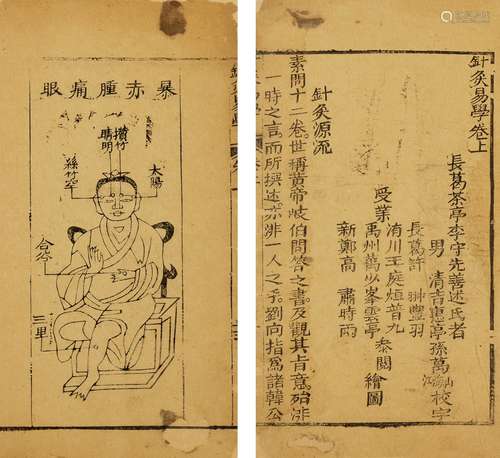 針灸易學卷上
長葛茶亭李守先善述氏著
男 清吉惠亭孫萬 校字
受業
長葛許 翀豐羽
洧川王庭烜普九
禹州萬以峯雲亭
新鄭高 肅時雨
參閱繪圖
針灸源流
素問十二卷世稱黃帝岐伯問答之書及觀其旨意殆非
一時之言而所撰述亦非一人之手劉向指爲諸韓公
暴赤腫痛眼
攢竹
睛明
太陽
絲竹空
合谷
三里